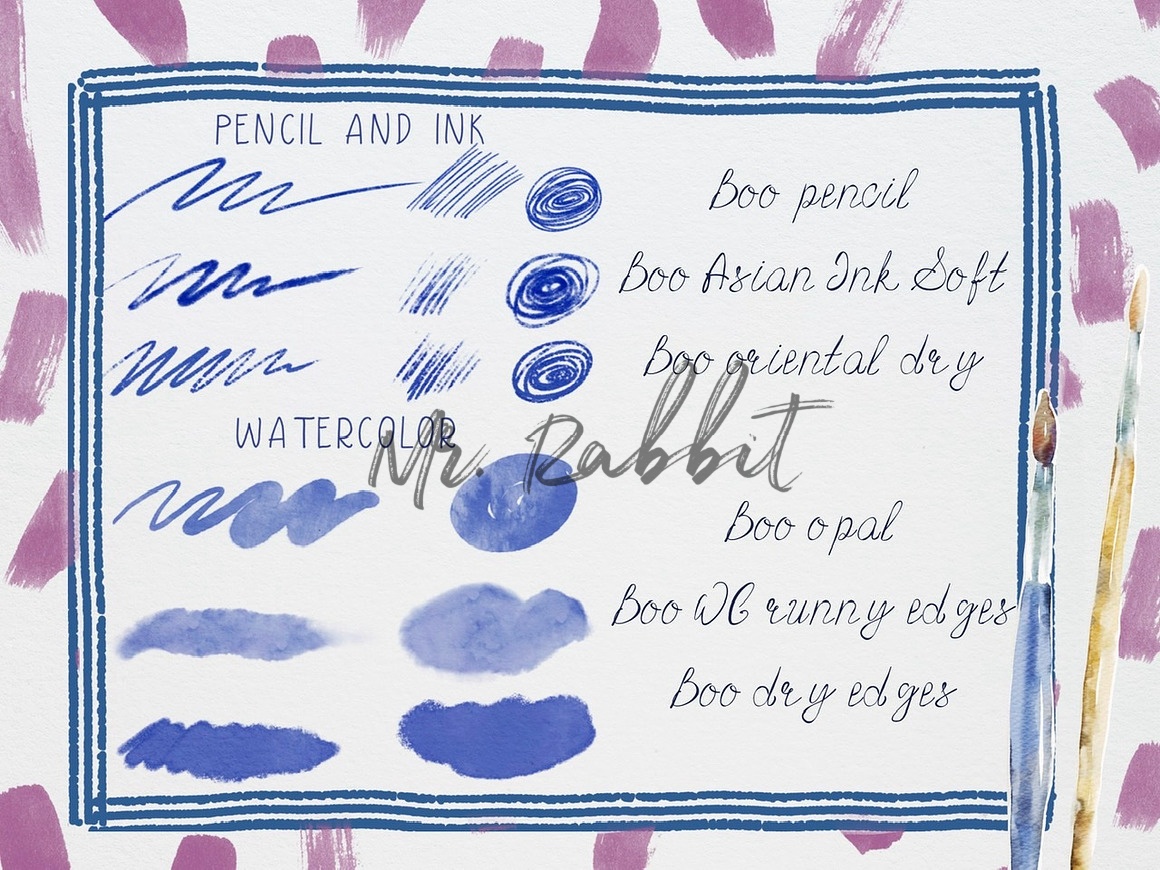 PENCIL AND INK
Boo pencil
Boo Asian Ink Soft
Boo oriental dry
WATERCOLOR
Mr. Rabbit
Boo opal
Boo WC runny edges
Boo dry edges